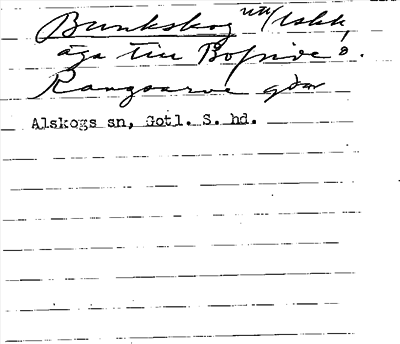 Bunkskog utm/lskk
äga till Bofride o.
Rangsarve gdar
Alskogs sn, Gotl. S. hd.